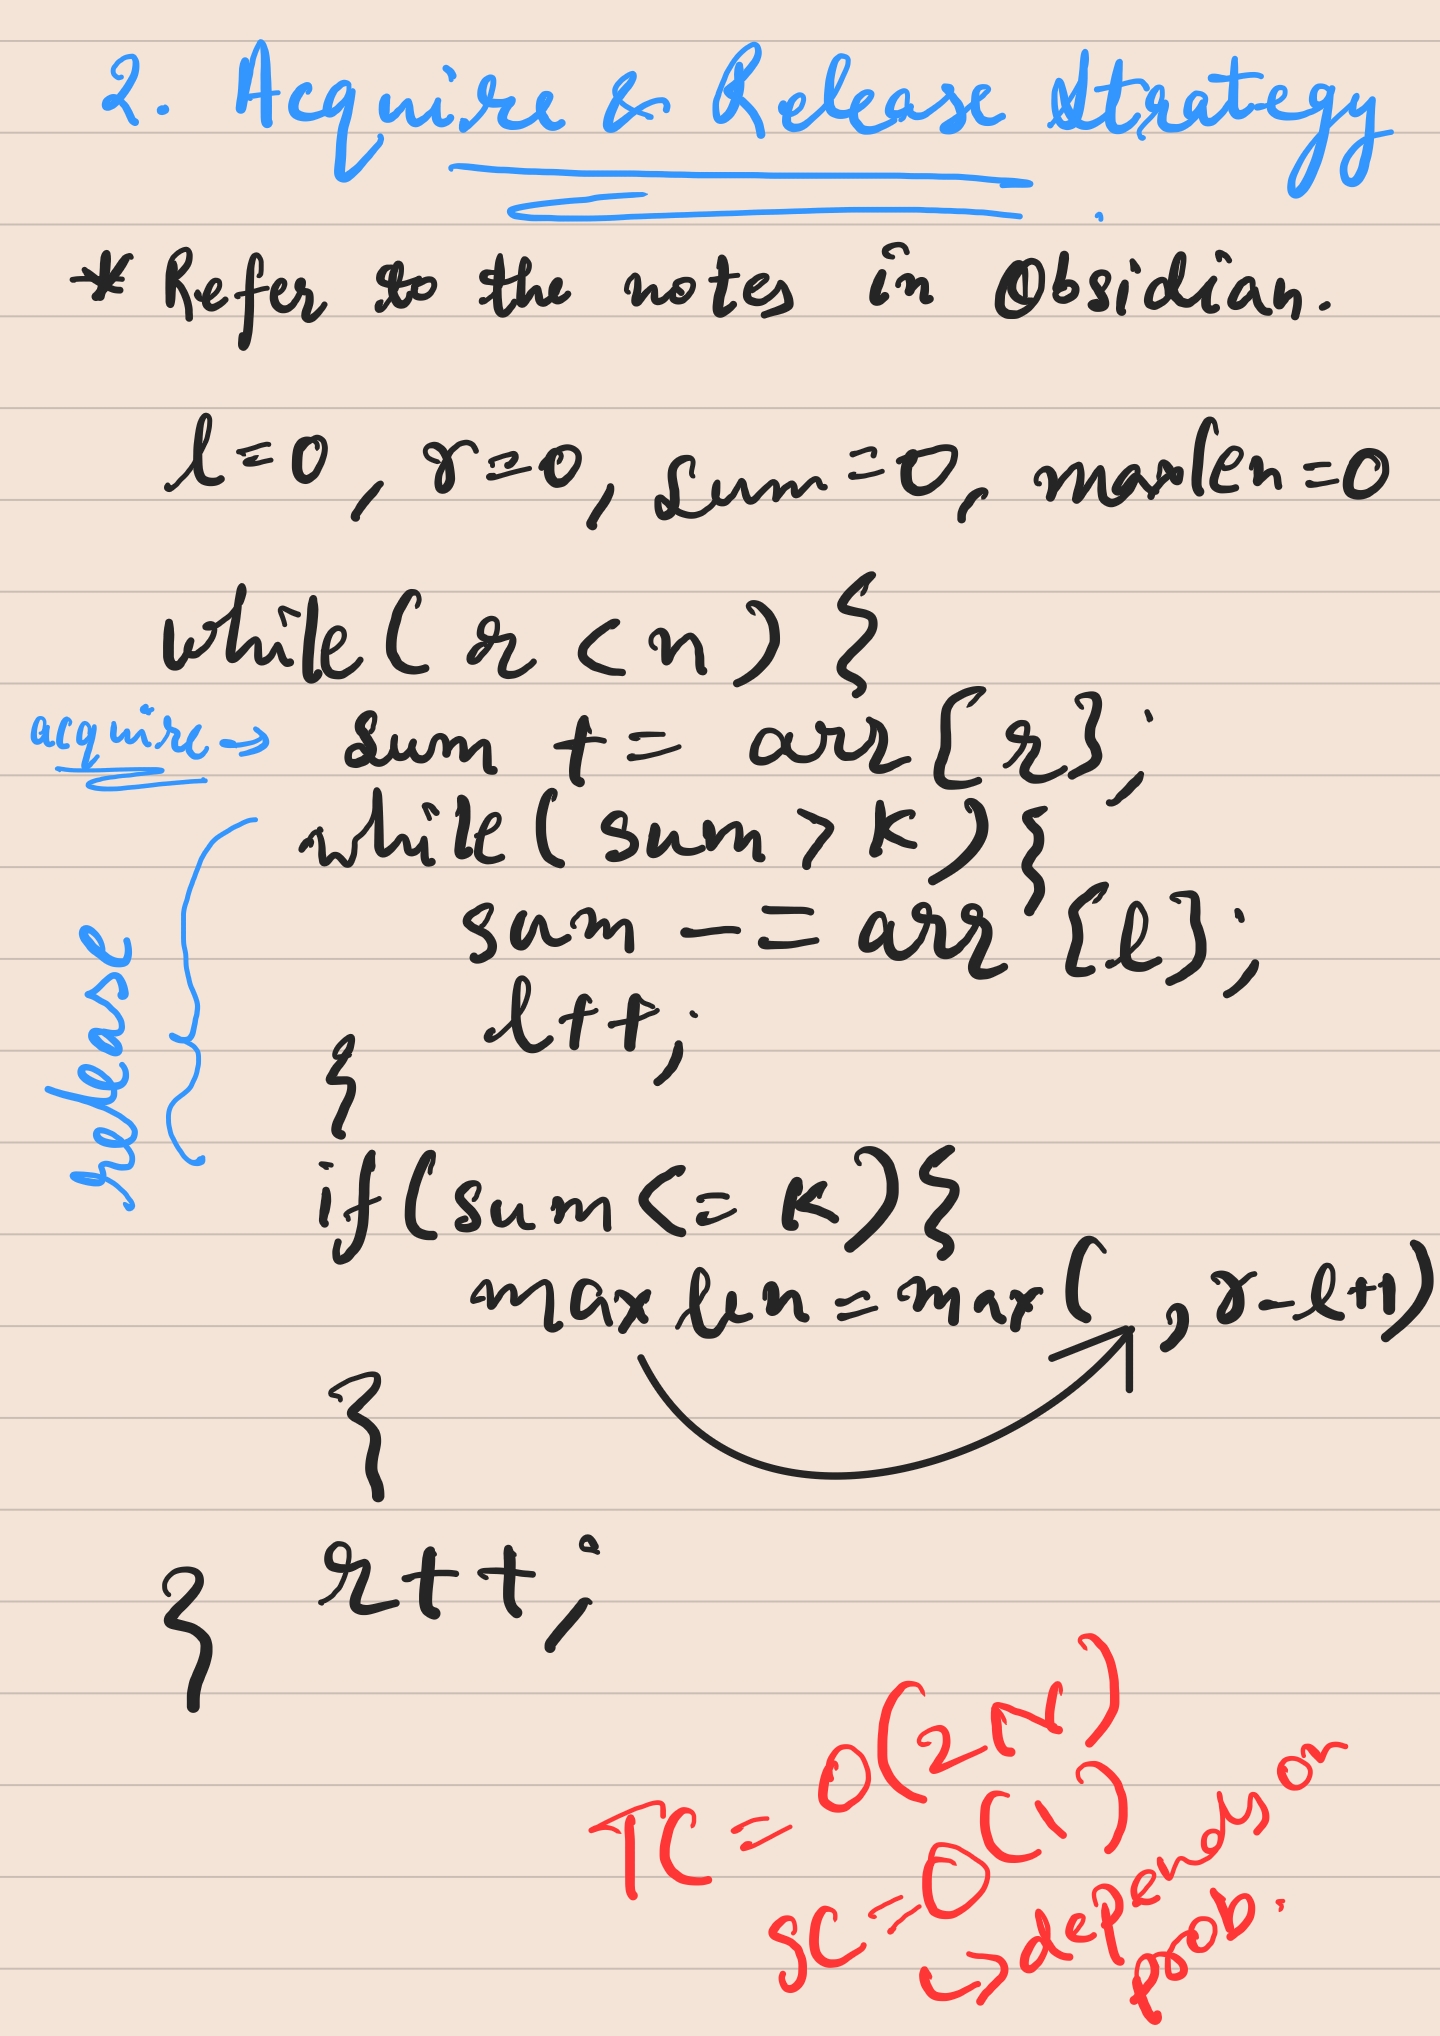 2. Acquire & Release Strategy
* Refer to the notes in Obsidian.
l=0, r=0, sum=0, maxlen=0
while(r<n){
acquire→ sum += arr[r];
while(sum > K){
sum -= arr[l];
l++;
}
release
if(sum <= K){
maxlen=max( ,r-l+1)
}
r++;
}
TC=O(2N)
SC=O(1)
↳depends on
prob.